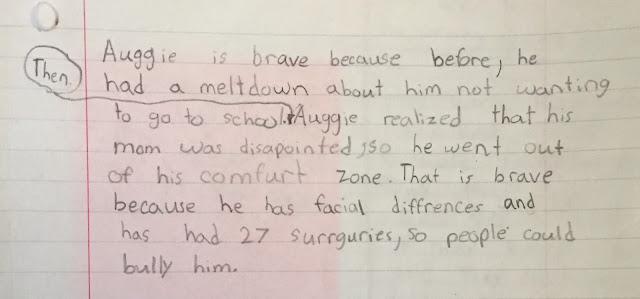 Auggie is brave because before, he
Then had a meltdown about him not wanting
to go to school. Auggie realized that his
mom was disapointed, so he went out
of his comfurt zone. That is brave
because he has facial diffrences and
has had 27 surrguries, so people could
bully him.